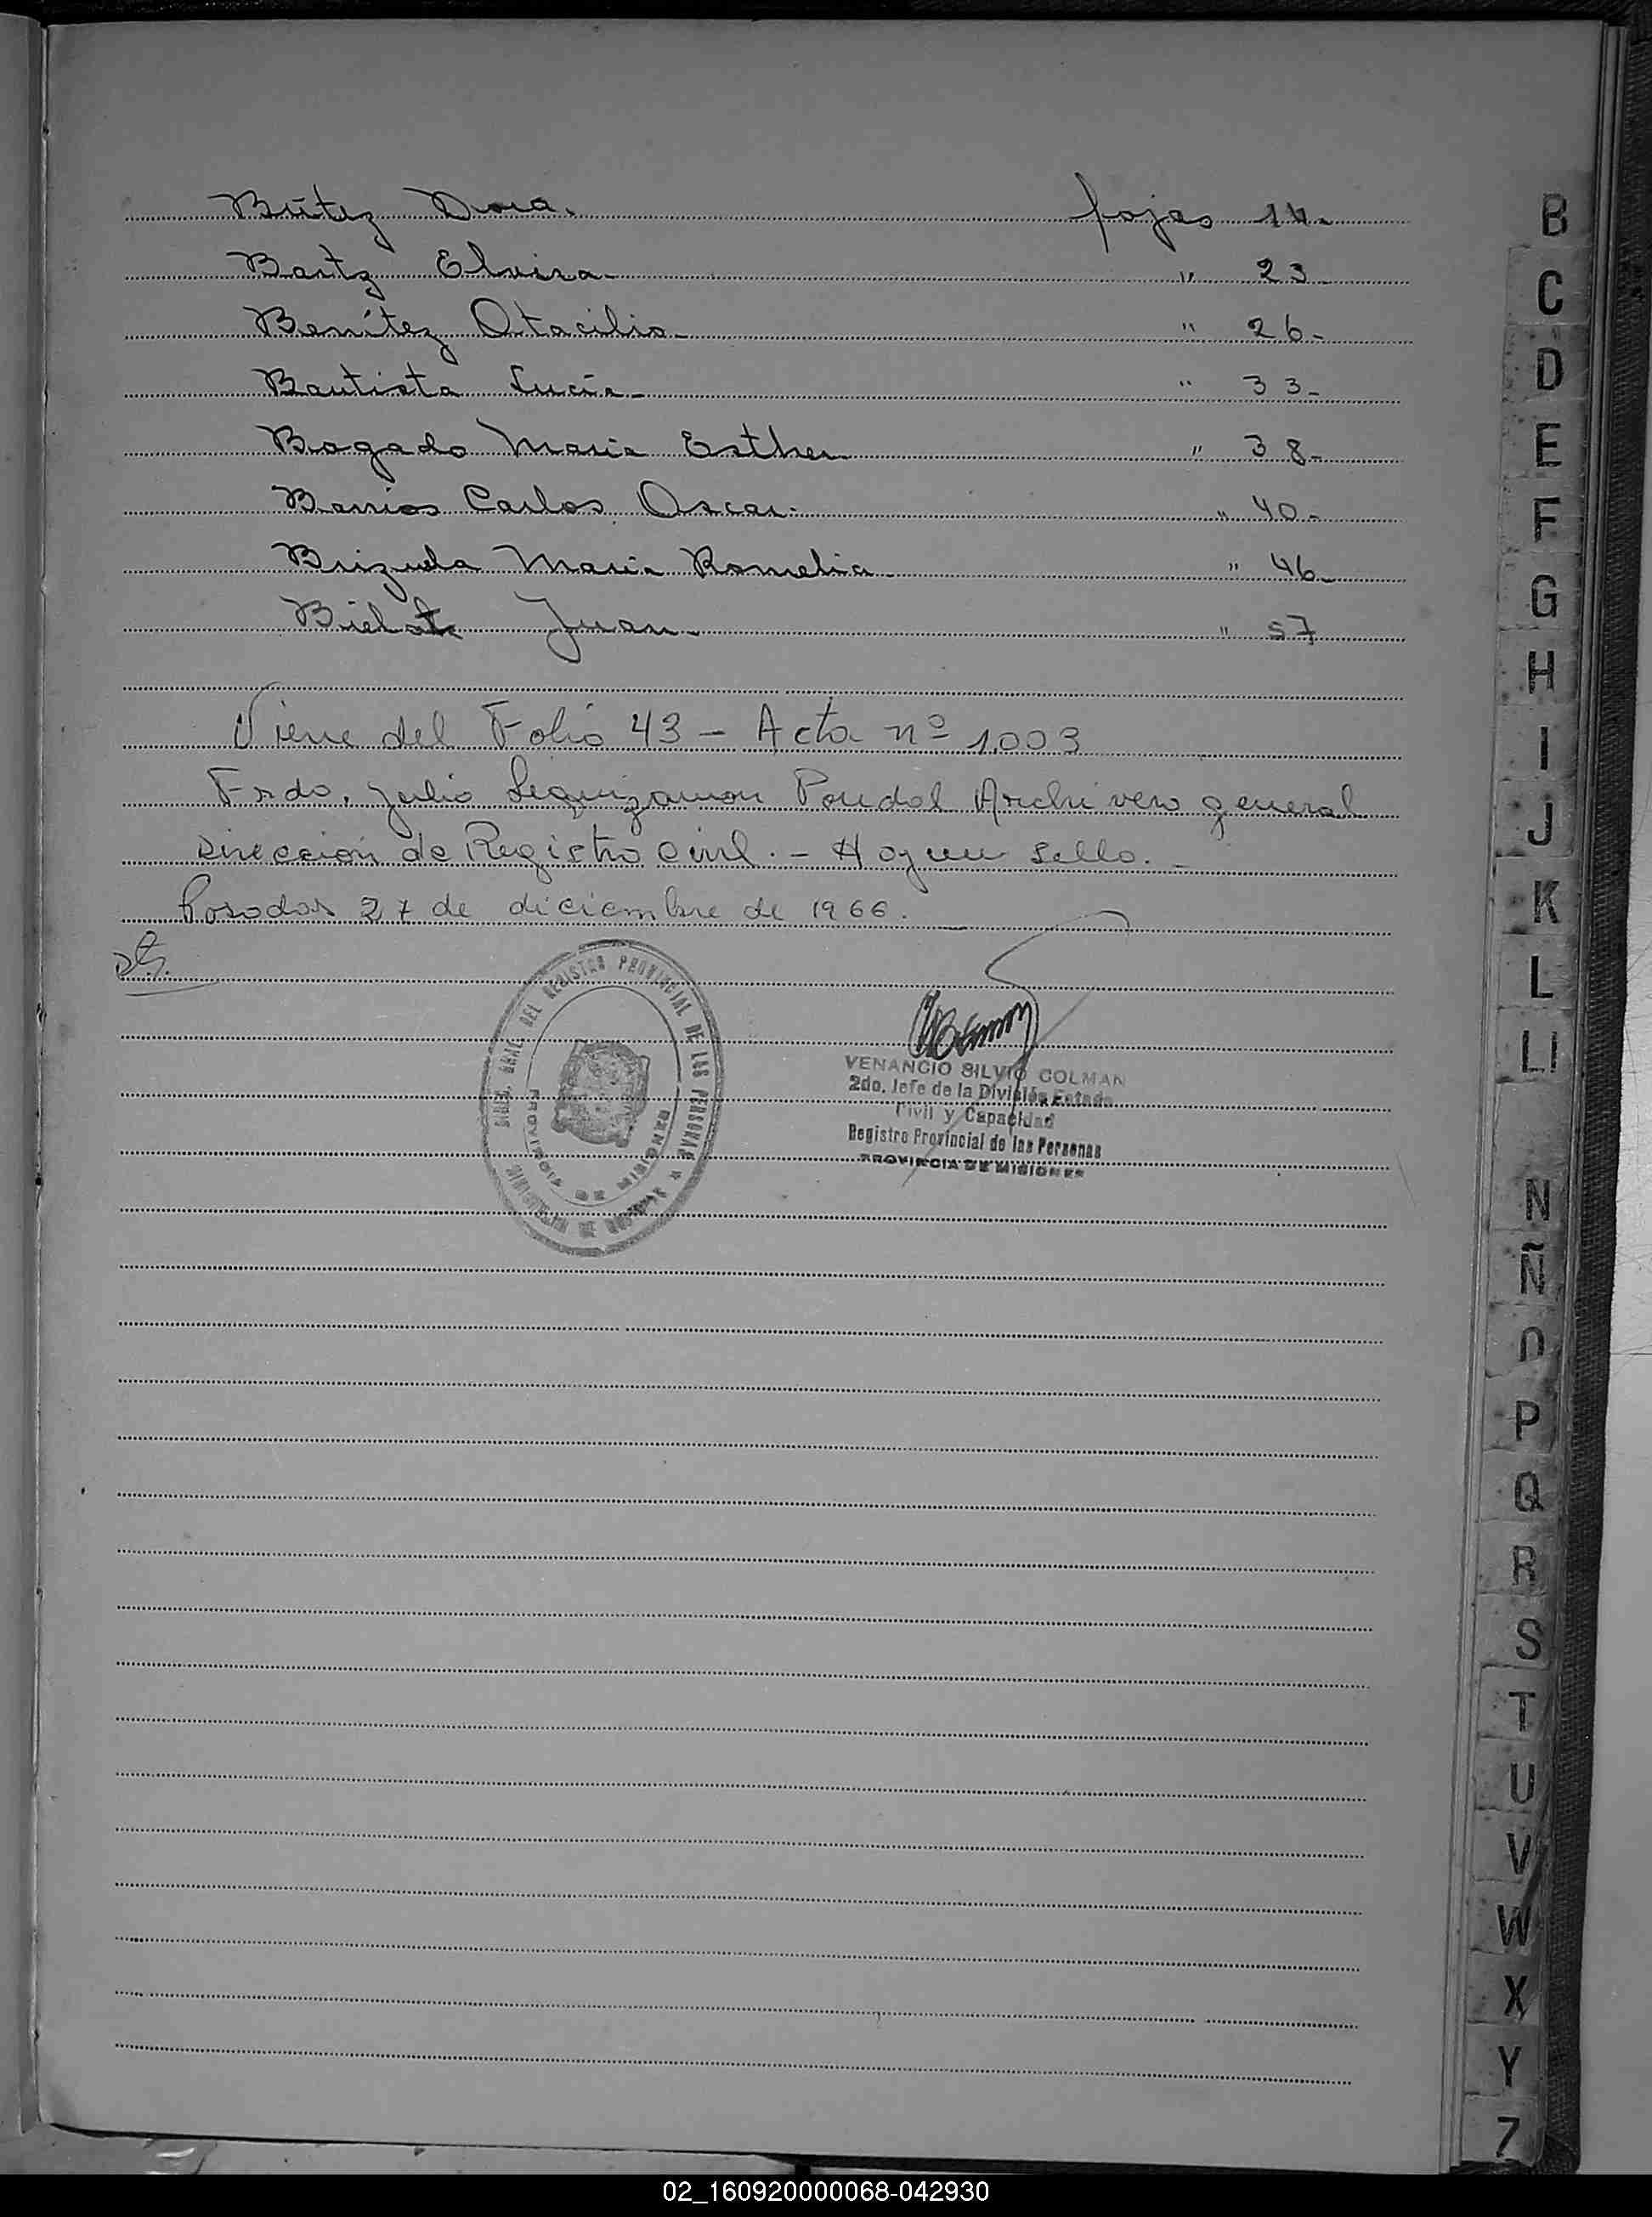 Bútez Dora. fojas 14.-
Bartz Elvira. " 23.-
Benítez Otacilio.- " 26.-
Bautista Lucía.- " 33-
Bogado María Esther " 38-
Barrios Carlos Oscar. " 40.-
Brizuela María Romelia " 46.-
Juan.- " 57
Viene del Folio 43 - Acta nº 1.003
Frdo. Julio Leguizamon Archivero general
Dirección de Registro civil. - Hay un sello. -
Posadas 27 de diciembre de 1966.
DIREC. GRAL. DEL REGISTRO PROVINCIAL DE LAS PERSONAS
PROVINCIA DE MISIONES
VENANCIO SILVIO COLMAN
2do. Jefe de la División Estado
Civil y Capacidad
Registro Provincial de las Personas
PROVINCIA DE MISIONES
B
C
D
E
F
G
H
I
J
K
L
Ll
N
Ñ
O
P
Q
R
S
T
U
V
W
X
Y
Z
02_160920000068-042930